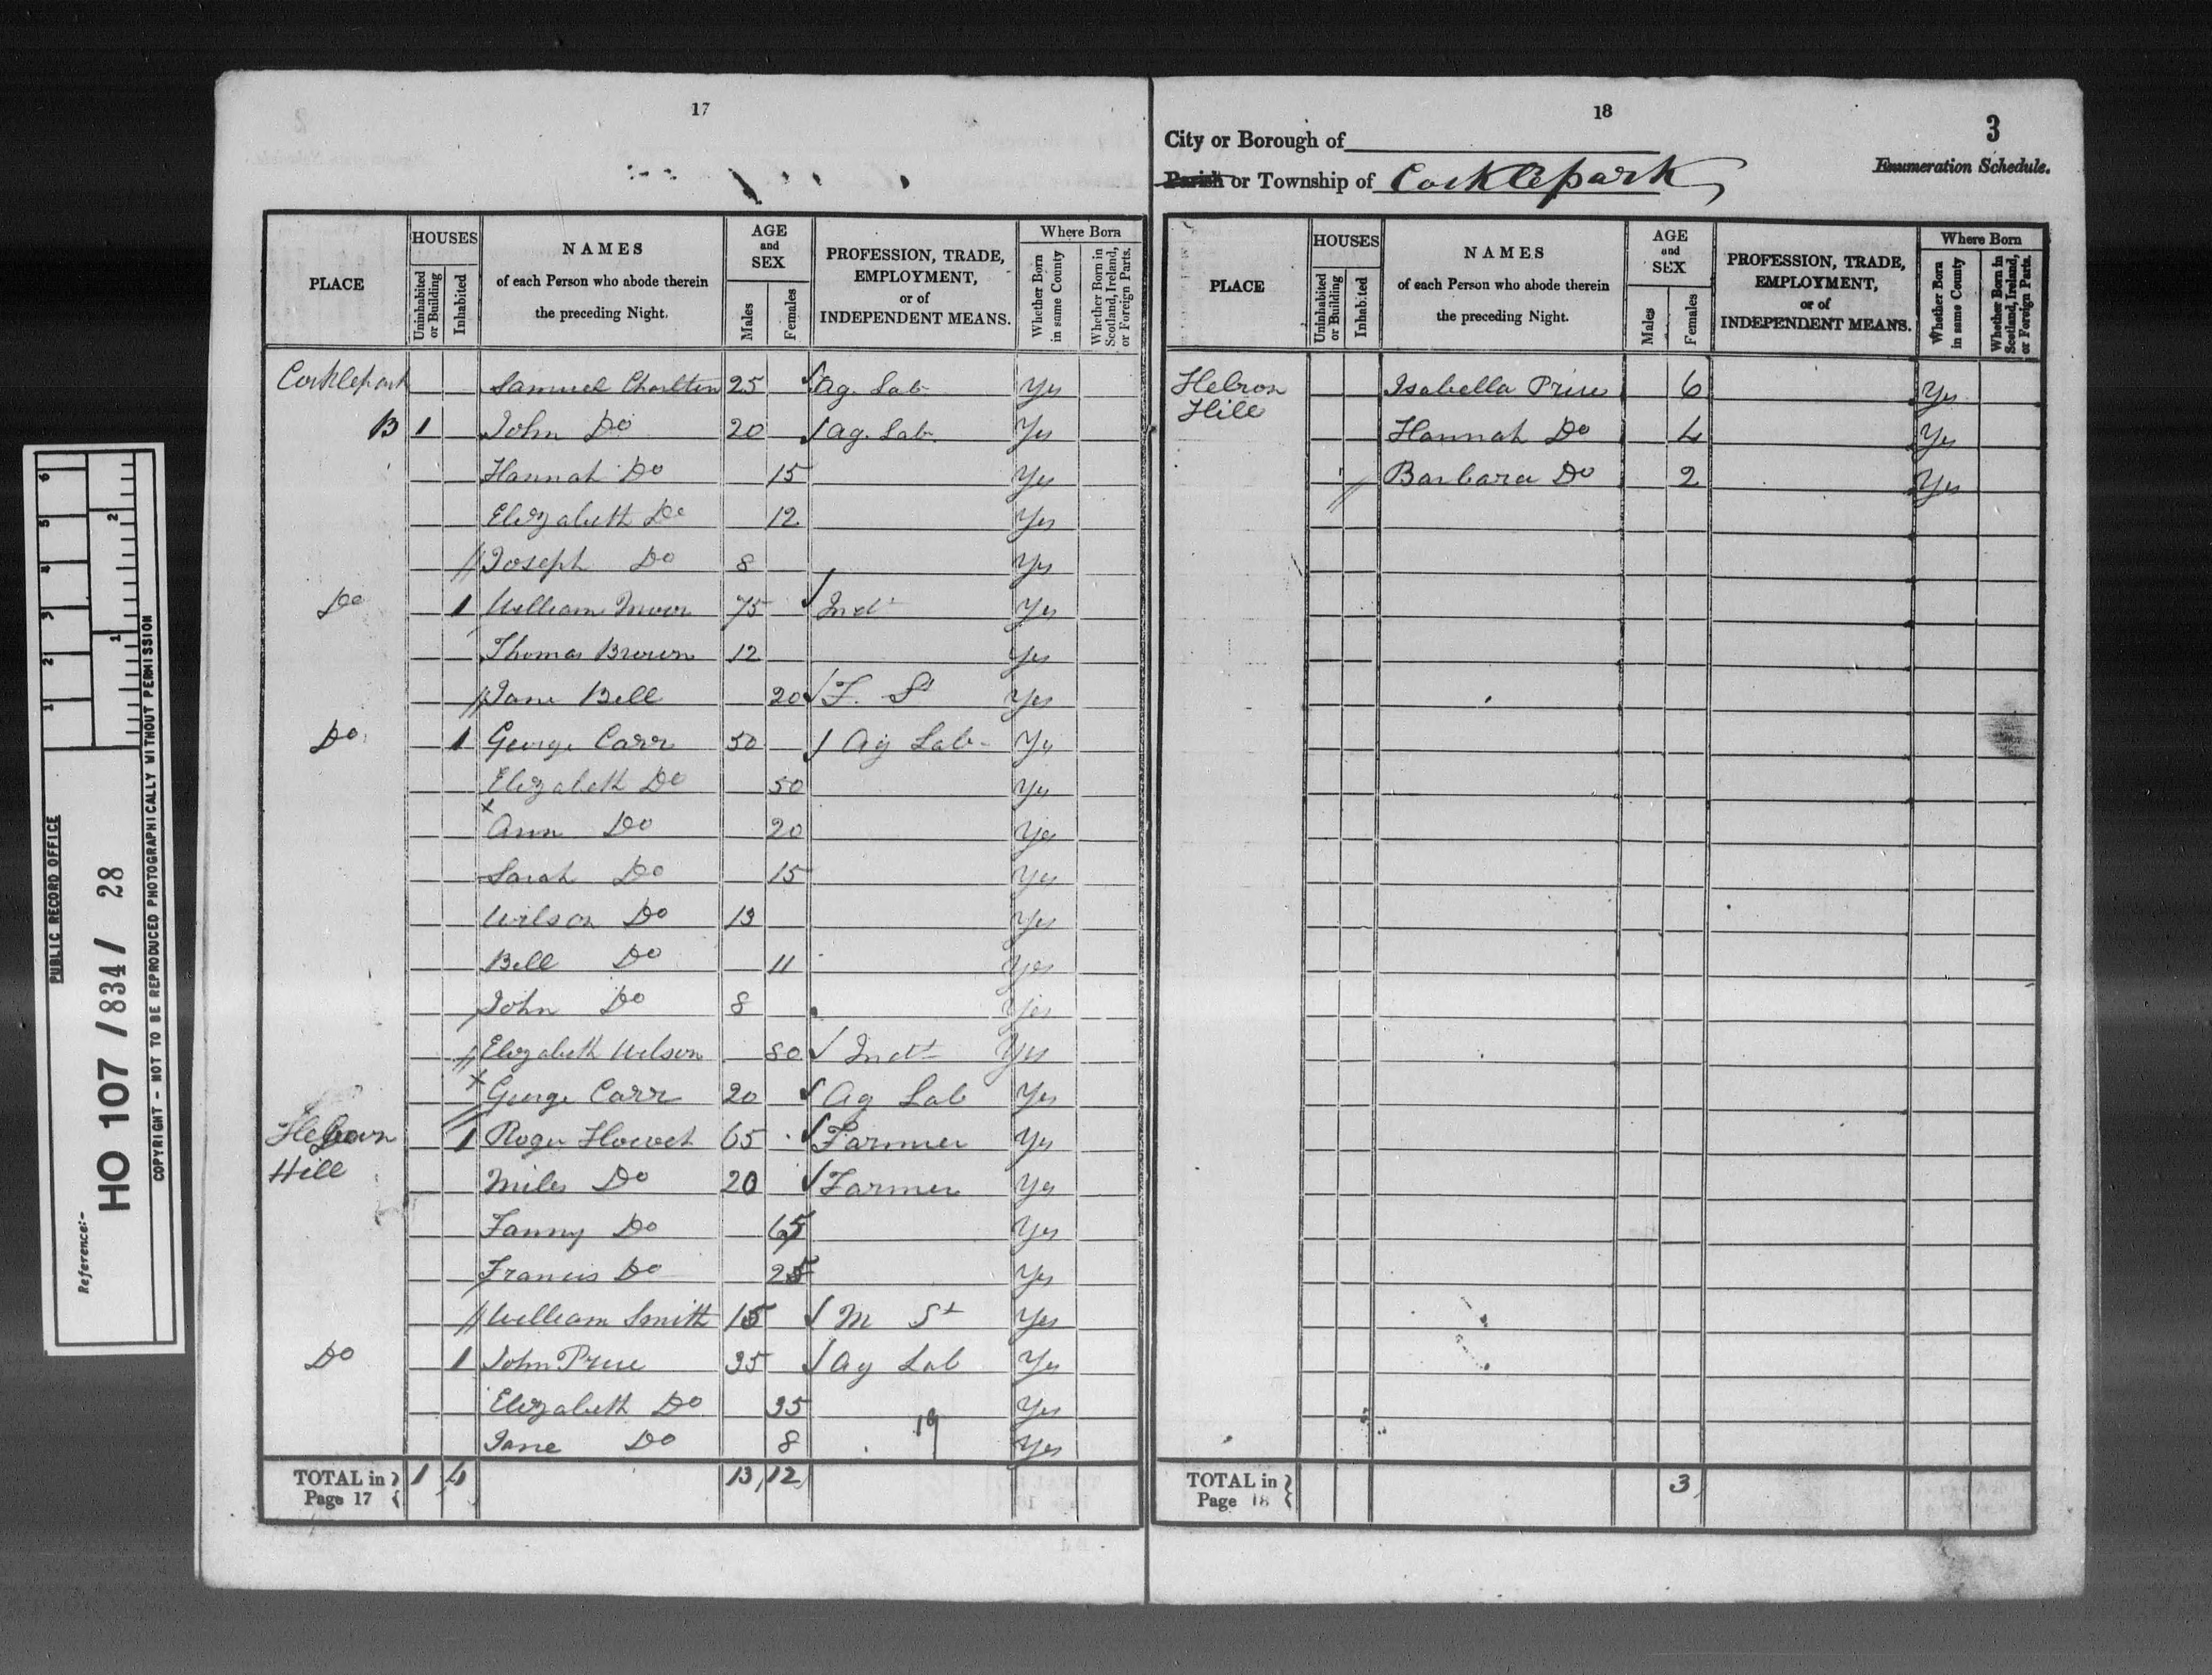 17
PLACE
HOUSES
Uninhabited or Building
Inhabited
NAMES
of each Person who abode therein
the preceding Night.
AGE and SEX
Males
Females
PROFESSION, TRADE,
EMPLOYMENT,
or of
INDEPENDENT MEANS.
Where Born
Whether Born in same County
Whether Born in Scotland, Ireland, or Foreign Parts.
Cocklepark Samuel Charlton 25 Ag. Lab. Yes
B 1 John Do 20 Ag. Lab. Yes
Hannah Do 15 Yes
Elizabeth Do 12 Yes
Joseph Do 8 Yes
Do 1 William Moor 75 Indt Yes
Thomas Brown 12 Yes
Jane Bell 20 F. St Yes
Do 1 George Carr 50 Ag Lab Yes
Elizabeth Do 50 Yes
Ann Do 20 Yes
Sarah Do 15 Yes
Wilson Do 13 Yes
Bell Do 11 Yes
John Do 8 Yes
Elizabeth Wilson 80 Indt Yes
George Carr 20 Ag Lab Yes
Hebron 1 Roger Howet 65 Farmer Yes
Hill Miles Do 20 Farmer Yes
Fanny Do 65 Yes
Francis Do 25 Yes
William Smith 15 M St Yes
Do 1 John Price 35 Ag Lab Yes
Elizabeth Do 35 Yes
19
Jane Do 8 Yes
TOTAL in Page 17 1 4 13 12
18
3
City or Borough of
Parish or Township of Cocklepark
Enumeration Schedule.
PLACE
HOUSES
Uninhabited or Building
Inhabited
NAMES
of each Person who abode therein
the preceding Night.
AGE and SEX
Males
Females
PROFESSION, TRADE,
EMPLOYMENT,
or of
INDEPENDENT MEANS.
Where Born
Whether Born in same County
Whether Born in Scotland, Ireland, or Foreign Parts.
Hebron Isabella Price 6 Yes
Hill Hannah Do 4 Yes
Barbara Do 2 Yes
TOTAL in Page 18 3
PUBLIC RECORD OFFICE
Reference:-
HO 107 / 834 / 28
COPYRIGHT - NOT TO BE REPRODUCED PHOTOGRAPHICALLY WITHOUT PERMISSION
1 2 3 4 5 6
1 2